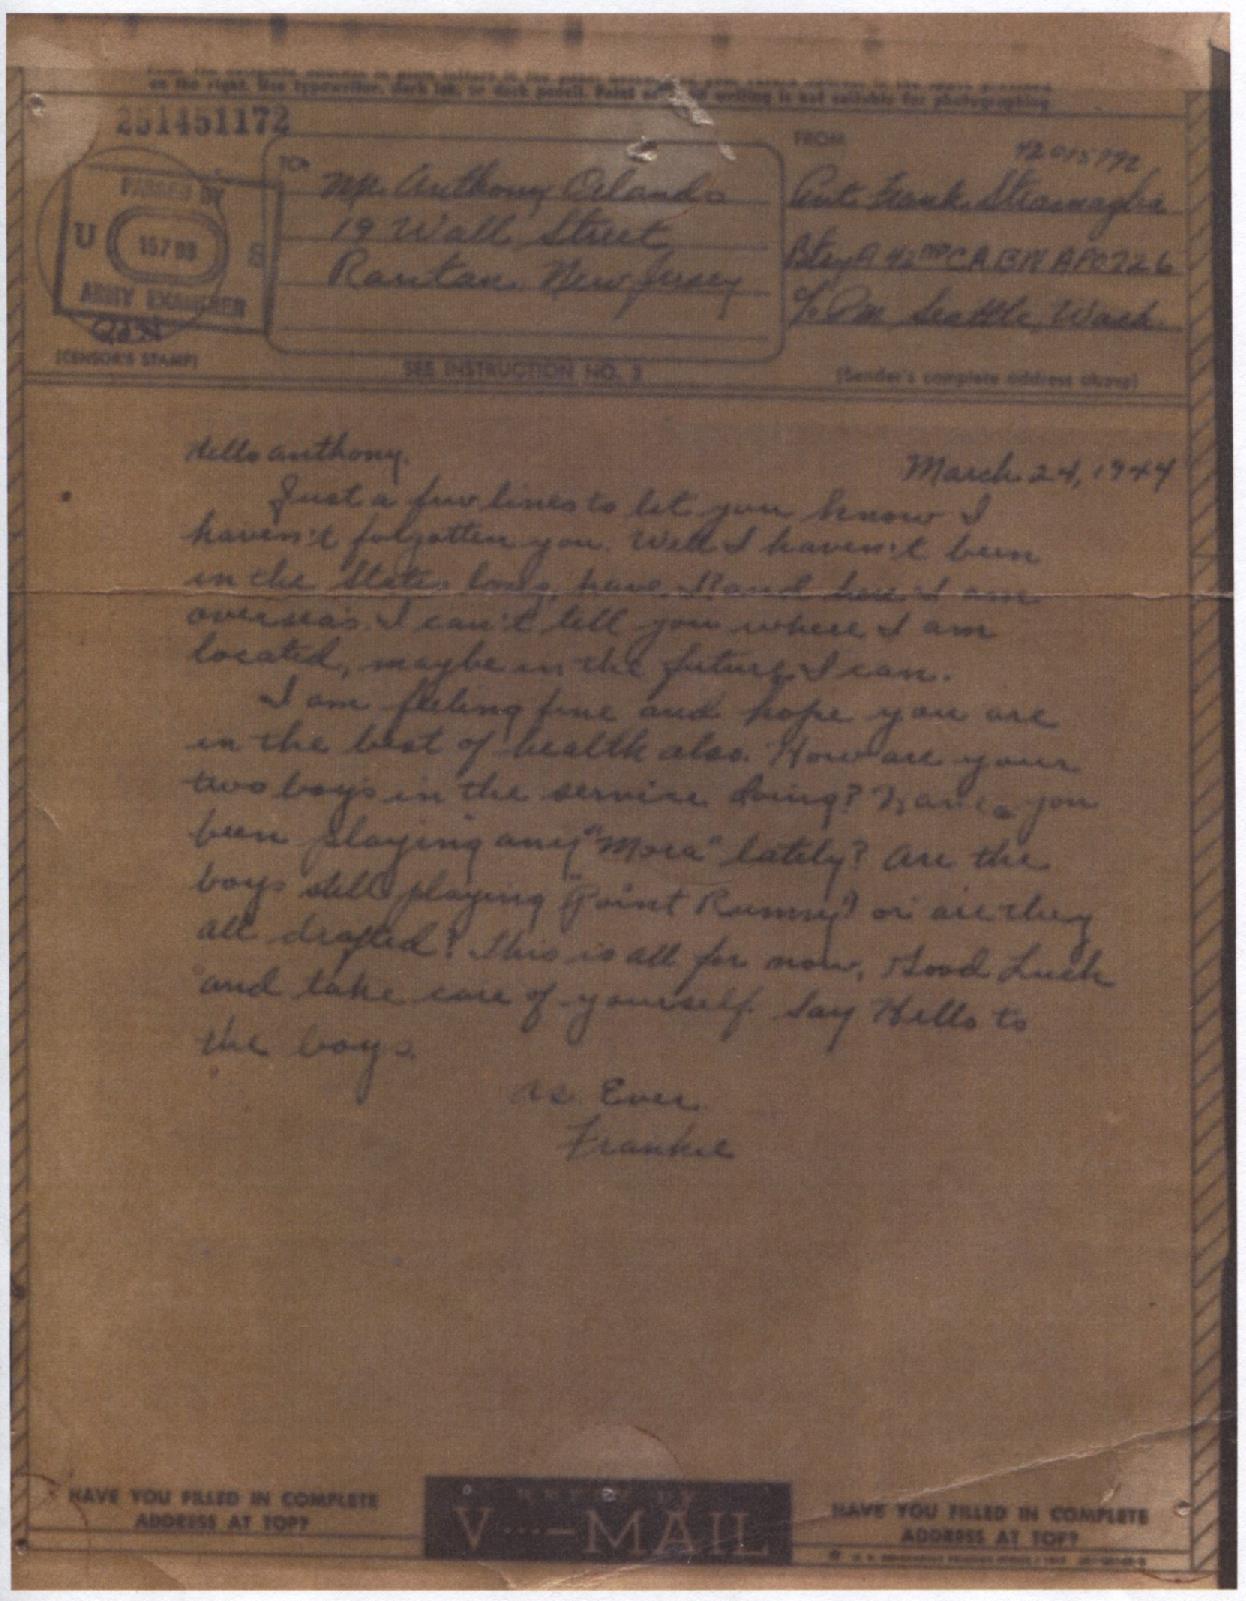 on the right. Use typewriter, dark ink, or dark pencil. writing is not suitable for photographing.
251451172
PASSED BY
U S
ARMY EXAMINER
(CENSOR'S STAMP)
TO
Mr. Anthony Orlando
19 Wall Street
Raritan New Jersey
SEE INSTRUCTION NO. 2
FROM
Frank
Btry A 42nd CA BN APO 726
c/o PM Seattle, Wash.
(Sender's complete address above)
Hello Anthony.
March 24, 1944
Just a few lines to let you know I
haven't forgotten you. Well I haven't been
in the States long, have I? and here I am
overseas. I can't tell you where I am
located, maybe in the future I can.
I am feeling fine and hope you are
in the best of health also. How are your
two boys in the service doing? Have you
been playing any "Mora" lately? Are the
boys still playing "Point Rummy" or are they
all drafted? This is all for now, Good Luck
and take care of yourself. Say Hello to
the boys.
As Ever
Frankie
HAVE YOU FILLED IN COMPLETE
ADDRESS AT TOP?
REPLY BY
V···—MAIL
HAVE YOU FILLED IN COMPLETE
ADDRESS AT TOP?